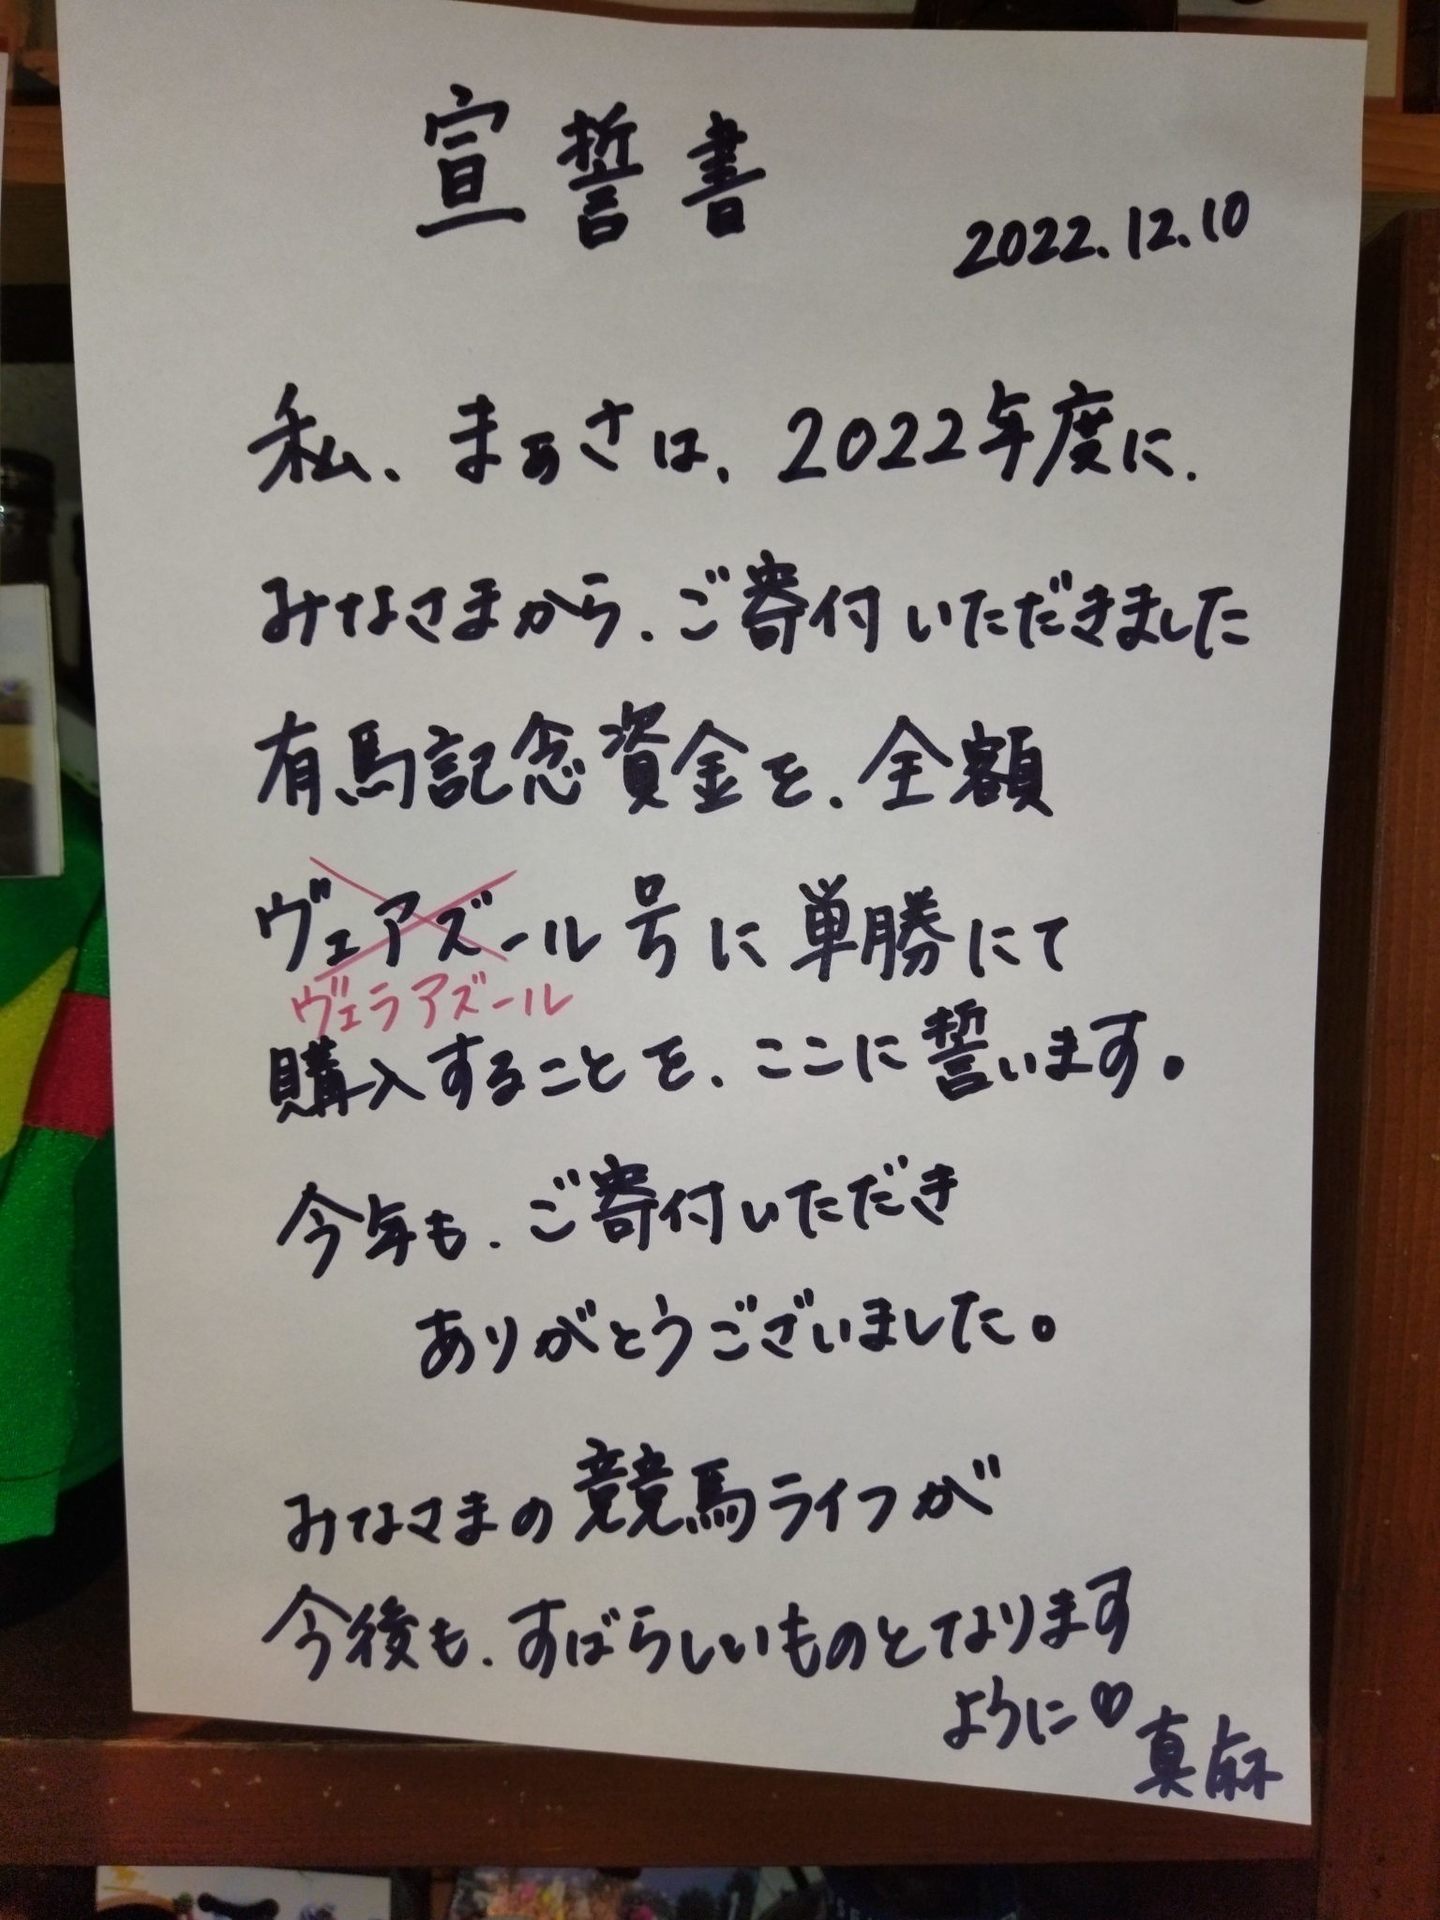 宣誓書
2022.12.10
私、まぁさは、2022年度に、
みなさまから、ご寄付いただきました
有馬記念資金を、全額
ヴェアズール号に単勝にて
ヴェラアズール
購入することを、ここに誓います。
今年も、ご寄付いただき
ありがとうございました。
みなさまの競馬ライフが
今後も、すばらしいものとなります
ように♡
真麻